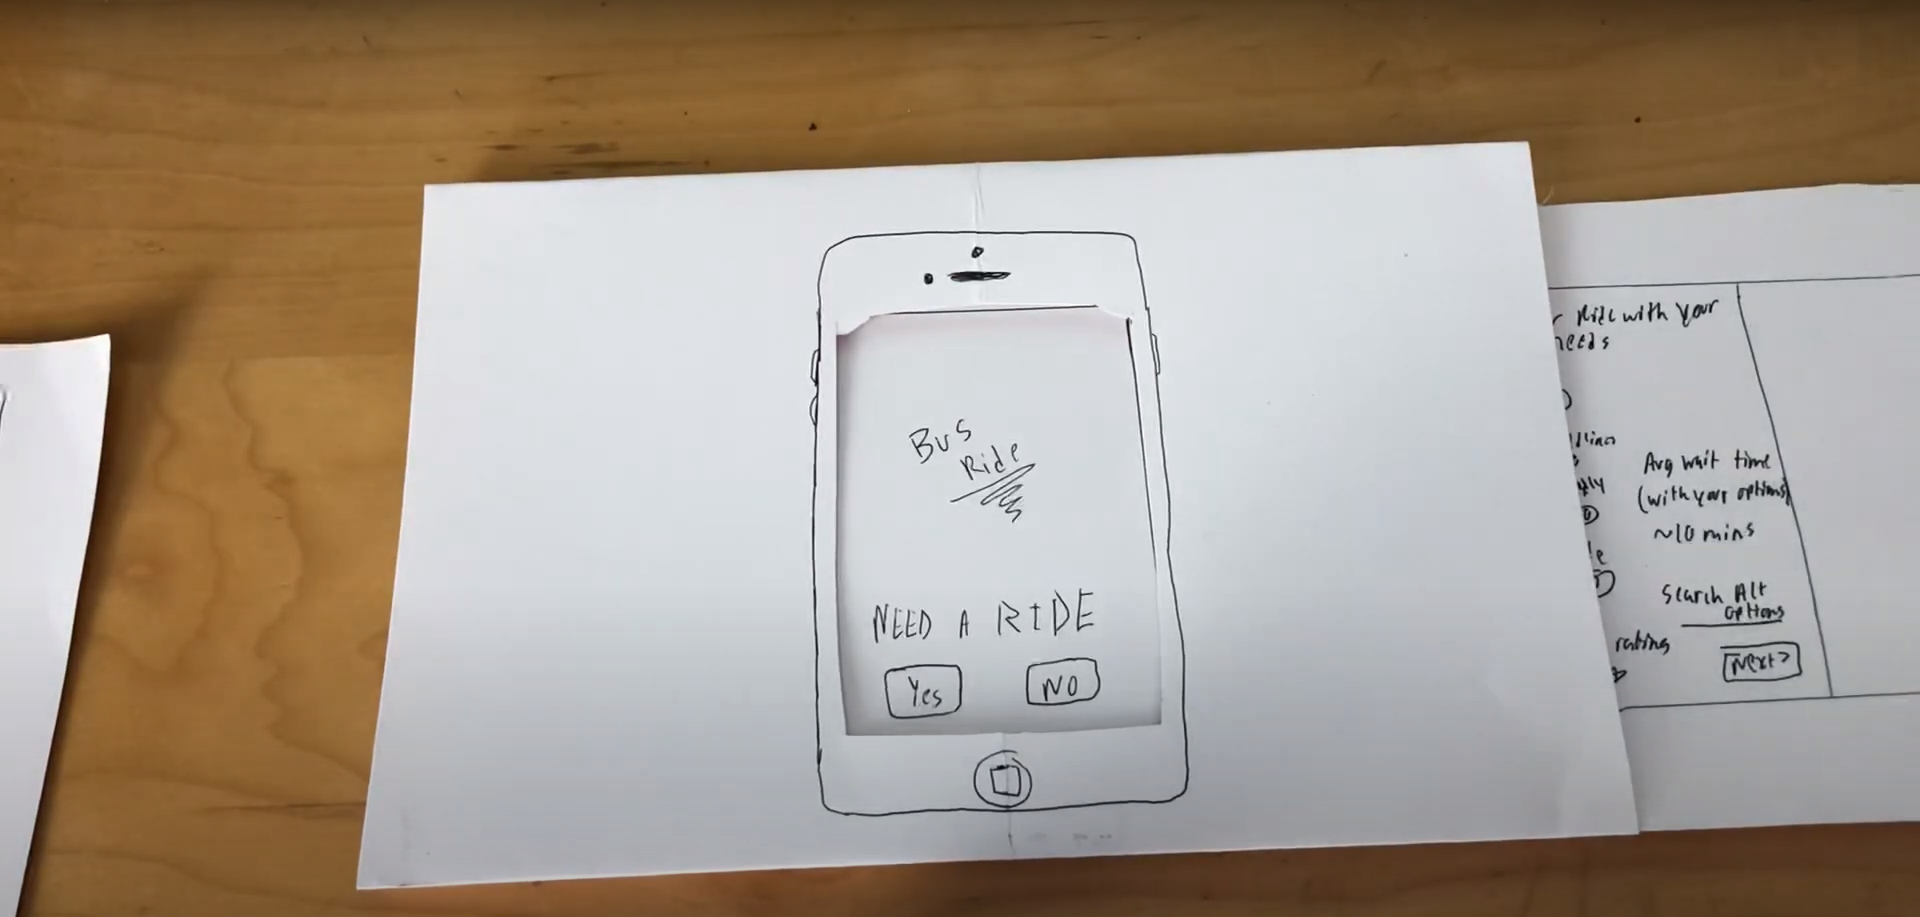 Bus
Ride
NEED A RIDE
Yes
NO
Ride with your
needs
Avg wait time
(with your options)
~10 mins
Search Alt
options
rating
Next>